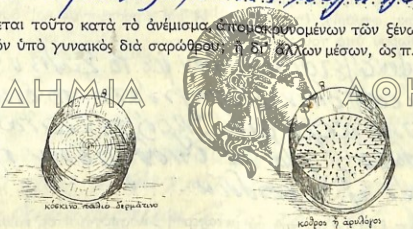 εται τοῦτο κατὰ τὸ ἀνέμισμα, ἀπομακρυνομένων τῶν ξένω
όν ὑπὸ γυναικὸς διὰ σαρώθρου; ἢ δι' ἄλλων μέσων, ὡς π.
ΔΗΜΙΑ ΑΘΗ
κόσκινο παλιὸ δερμάτινο
κόθρος ἢ ἀριλόγος